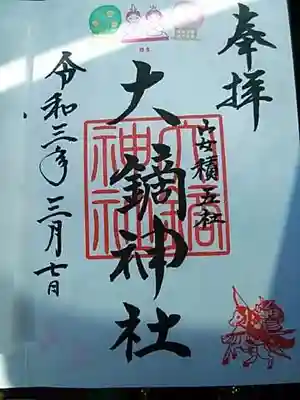 奉拝
安積五社
大鏑神社
令和三年三月七日